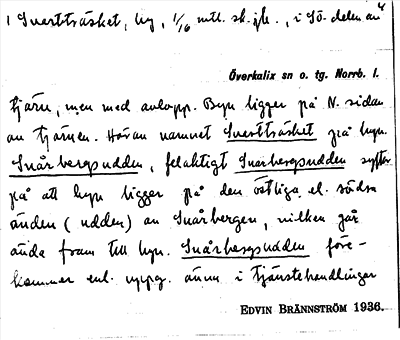 1 Snartträsket, by, 1/6 mtl. sk. jb., i Sö-delen av 4
Överkalix sn o. tg. Norrb. l.
tjärn, men med avlopp. Byn ligger på N. sidan
av tjärnen. Härav namnet Snartträsket på byn.
Snårbergsudden, felaktigt Snarbergsudden syftar
på att byn ligger på den östliga el. södra
änden (udden) av Snårbergen, vilken går
ända fram till byn. Snårbergsudden före-
kommer enl. uppg. ännu i tjänstehandlingar
EDVIN BRÄNNSTRÖM 1936.